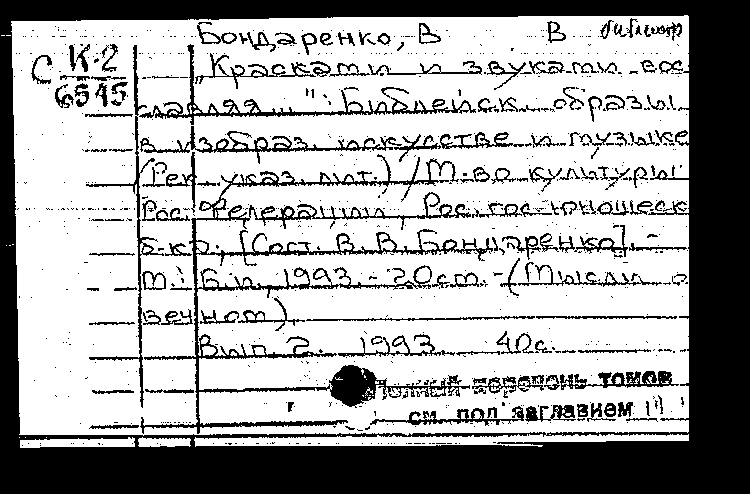 Бондаренко, В В библиогр
С К-2
6545
"Красками и звуками вос
славляя...": Библейск. образы
в изобраз. искусстве и музыке
(Рек. указ. лит.) / М-во культуры
Рос. Федерации, Рос. гос. юношеск
б-ка; [Сост. В. В. Бондаренко]. -
М.: Б.и., 1993. - 20см. - (Мысли о
вечном).
Вып. 2. 1993. 40с.
Полный перечень томов
см. под заглавием